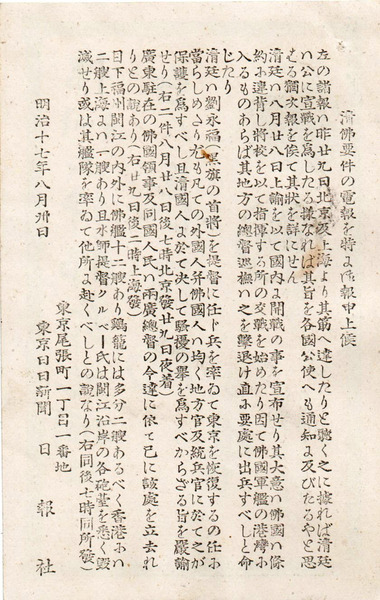 清佛要件の電報を特に報申上候
左の諸報は昨廿九日北京及上海より其筋へ達したりと聽く之に據れば清廷
は公に宣戰を爲したる樣なれば其旨を各國公使へも通知に及びたるやと思
はる猶次報を俟て其狀を詳にせん
清廷は八月廿八日上諭を以て國內に開戰の事を宣布せり其大意は佛國は條
約に違背し將校を以て指揮する所の交戰を始めたり因て佛國軍艦の港灣に
入るものあらば其地方の總督巡撫は之を擊退け直に要處に出兵すべしと命
じたり
清廷は劉永福（黑旗の首將）を提督に任じ兵を率ゐて東京を恢復するの任に
當らしめたり尤も凡ての外國人并佛國人は均く地方官及統兵官に於て之が
保護を爲すべし且清國人に於て決して騷擾の擧を爲すべからざる旨を嚴諭
せり（右二件八月廿八日後七時北京發廿九日夜着）
廣東駐在の佛國領事及同國人民は兩廣總督の令達に依て已に該處を立去れ
りとの說あり（右廿九日後二時上海發）
目下福州閩江の內外に佛艦十二艘あり鷄龍には多分二艘あるべく香港には
二艘上海には一艘あり且水師提督クルベー氏は閩江沿岸の各砲臺を悉く毀
滅せり或は其艦隊を率ゐて他所に赴くべしとの說なり（右同後七時同所發）
明治十七年八月卅日
東京尾張町一丁目一番地
東京日日新聞 日報社